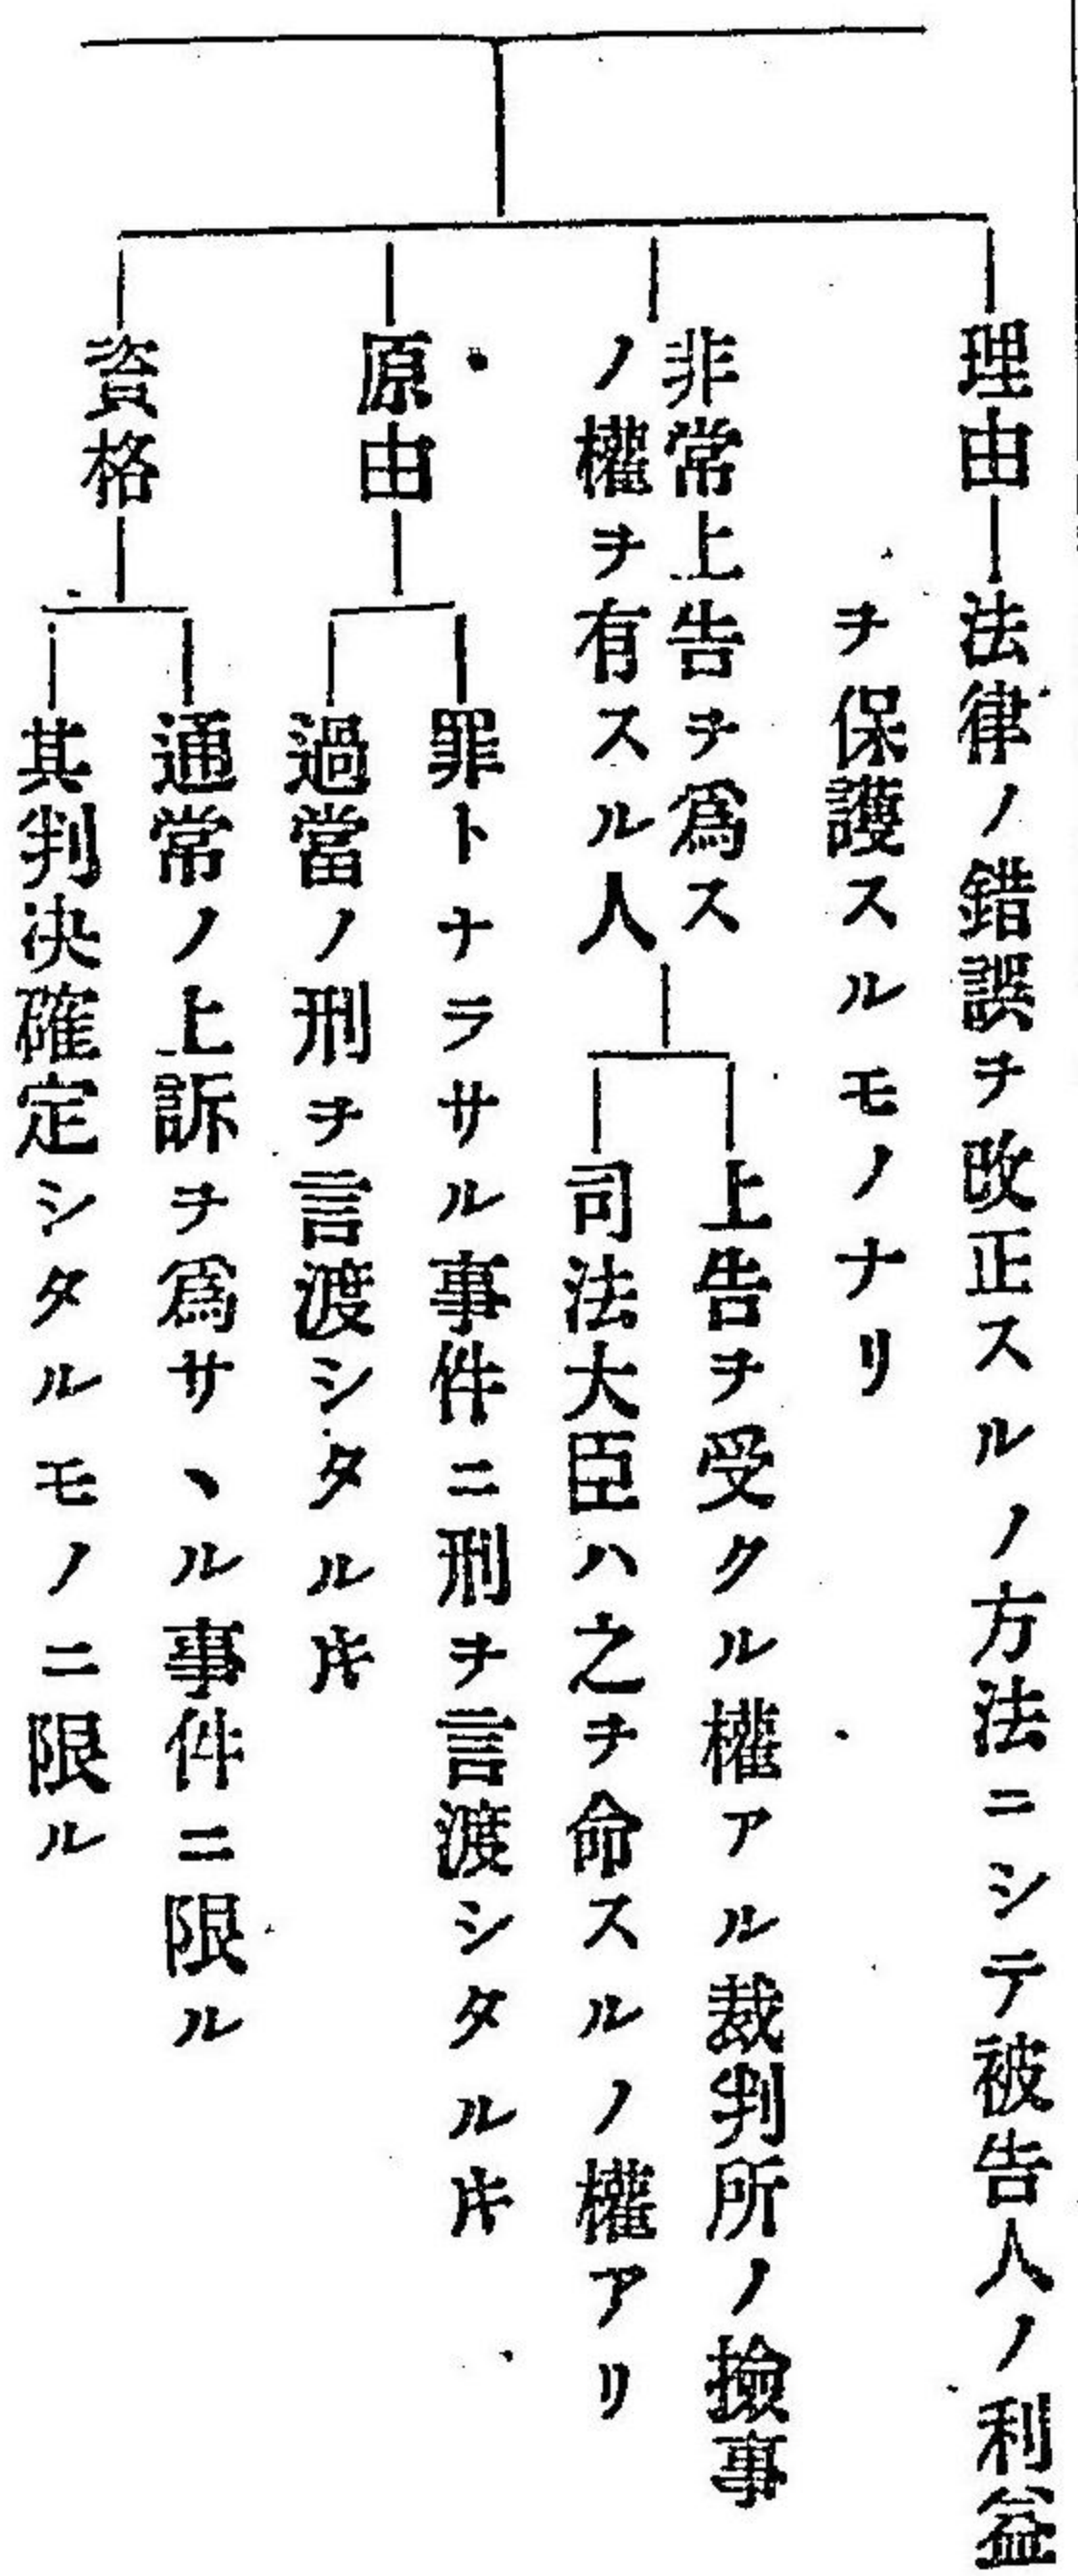 理由―法律ノ錯誤ヲ改正スルノ方法ニシテ被告人ノ利益
ヲ保護スルモノナリ
非常上告ヲ爲ス
ノ權ヲ有スル人
上告ヲ受クル權アル裁判所ノ撿事
司法大臣ハ之ヲ命スルノ權アリ
原由
罪トナラサル事件ニ刑ヲ言渡シタル𪜈
過當ノ刑ヲ言渡シタル𪜈
資格
通常ノ上訴ヲ爲サヽル事件ニ限ル
其判决確定シタルモノニ限ル